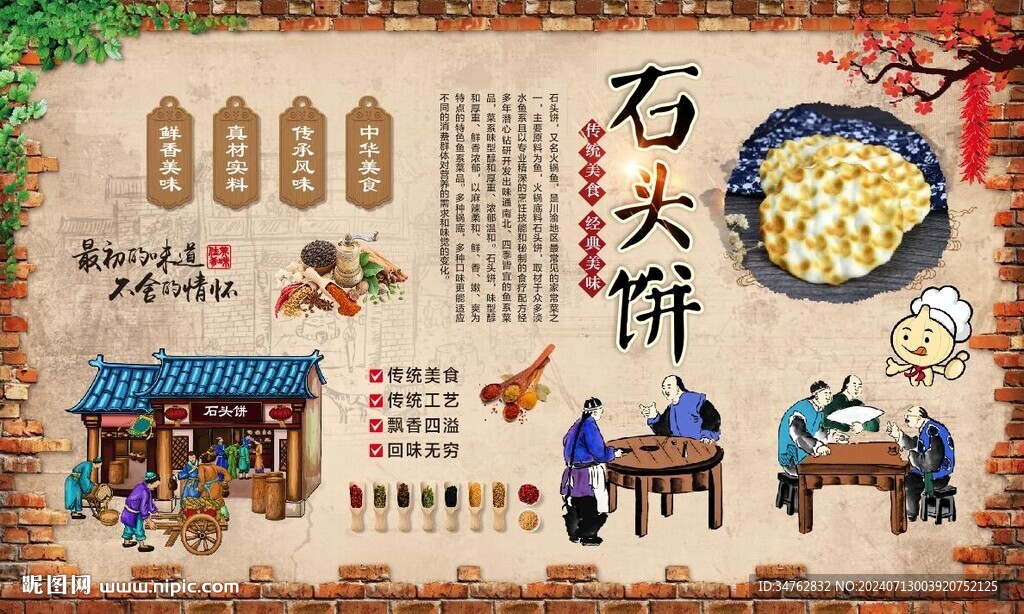 石头饼
传统美食 经典美味
石头饼，又名火锅鱼，是川渝地区最常见的家常菜之
一，主要原料为鱼，火锅底料石头饼，取材于众多淡
水鱼系且以专业精深的烹饪技能和秘制的食疗配方经
多年潜心钻研开发出味通南北、四季皆宜的鱼系菜
品，菜系味型醇和厚重、浓郁温和。石头饼，味型醇
和厚重、鲜香浓郁，以麻辣柔和、鲜、香、嫩、爽为
特点的特色鱼系菜品。多种锅底、多种口味更能适应
不同的消费群体对营养的需求和味觉的变化。
中华美食
传承风味
真材实料
鲜香美味
最初的味道
不舍的情怀
石头饼
传统美食
传统工艺
飘香四溢
回味无穷
昵图网 www.nipic.com
ID:34762832 NO:20240713003920752125